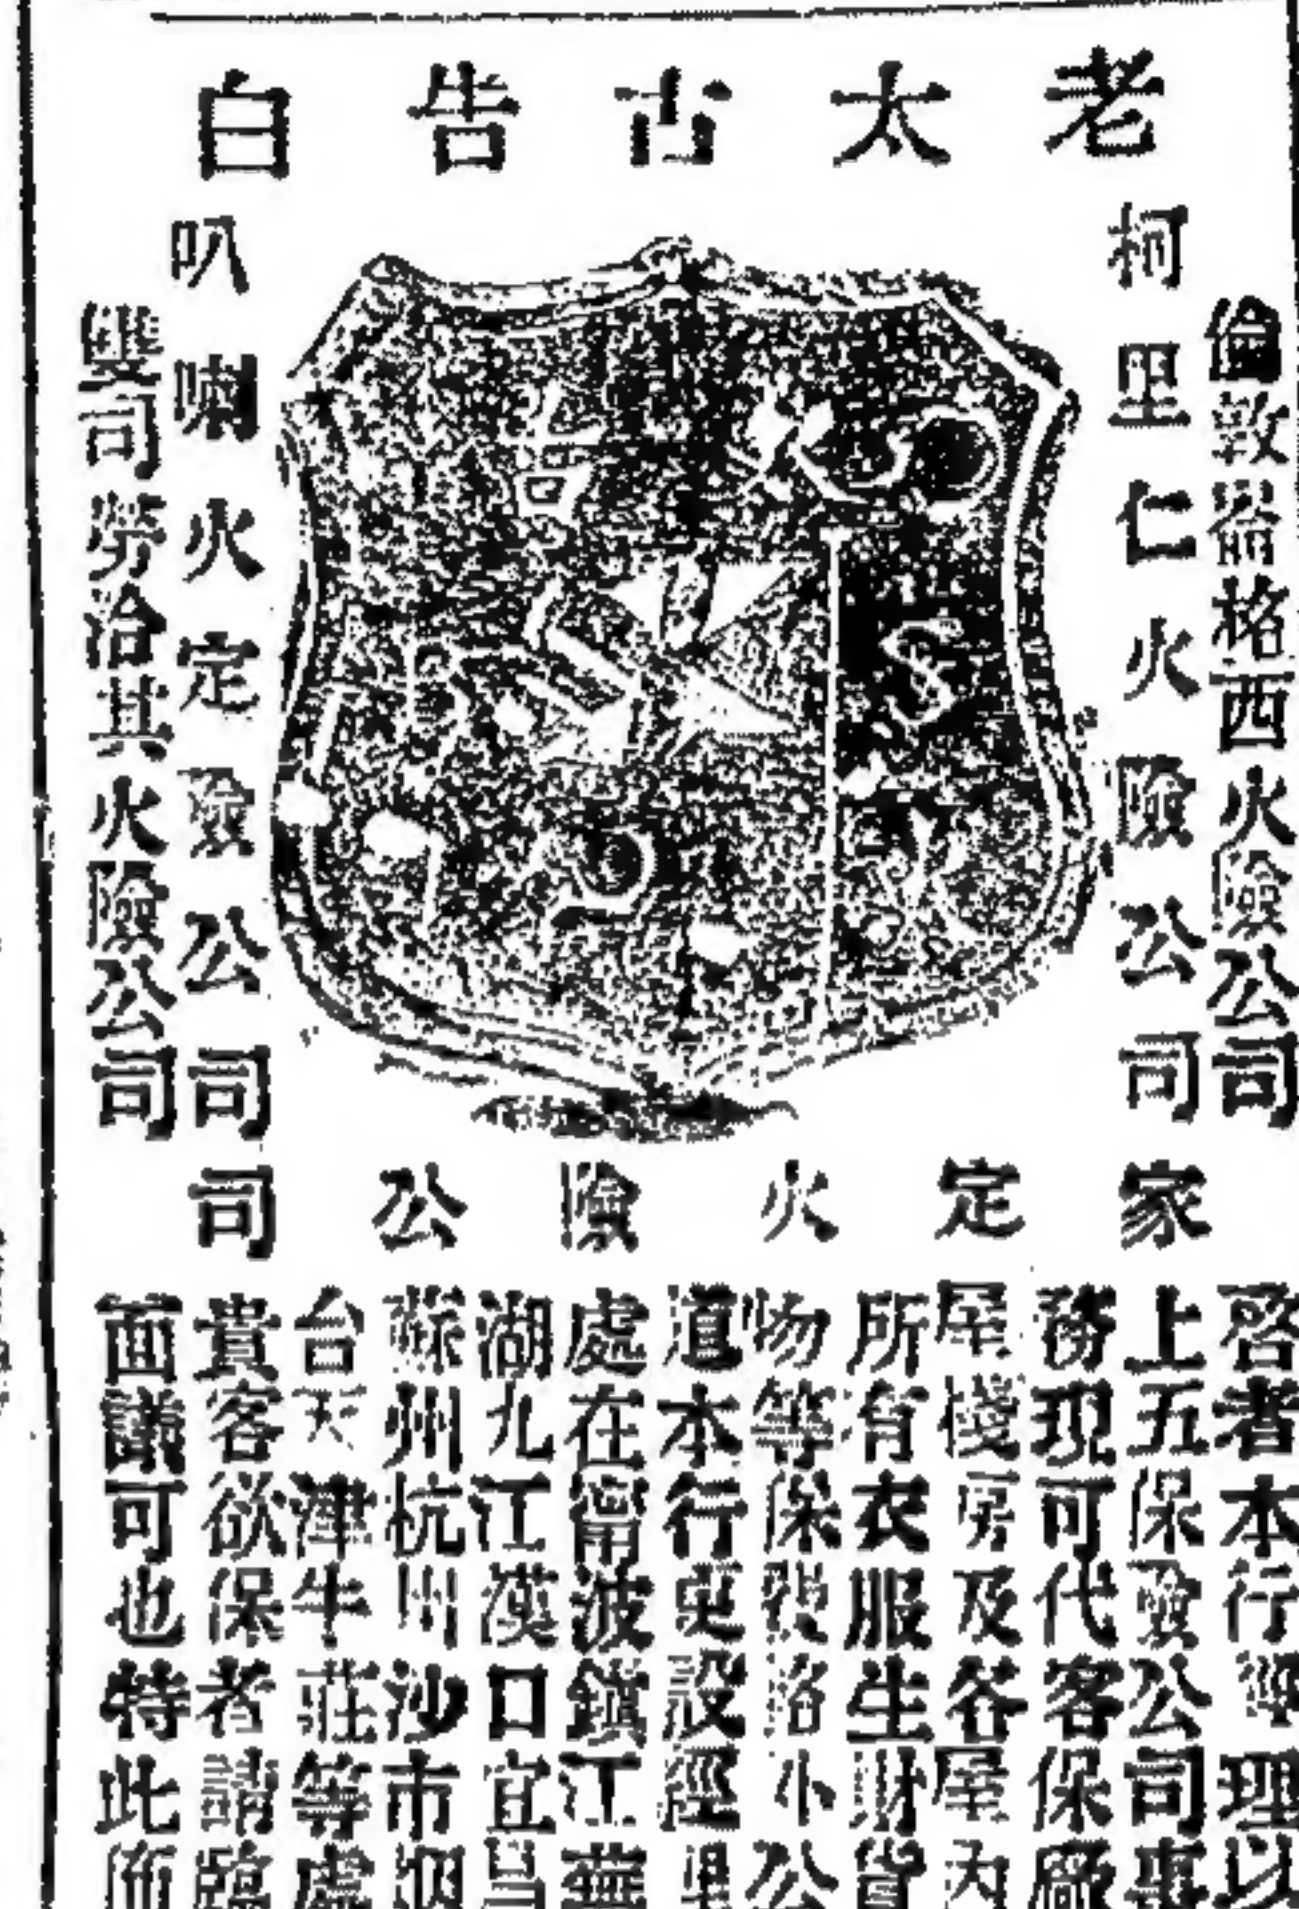 老太古告白
倫敦崙格西火險公司
柯里仁火險公司
叭喇火定險公司
雙司勞洽其火險公司
家定火險公司
啓者本行經理以
上五保險公司事
務現可代客保廠
屋棧房及各屋內
所有衣服生財貨
物等保費格外公
道本行更設經理
處在甯波鎮江蕪
湖九江漢口宜昌
蘇州杭州沙市烟
台天津牛莊等處
貴客欲保者請臨
面議可也特此佈